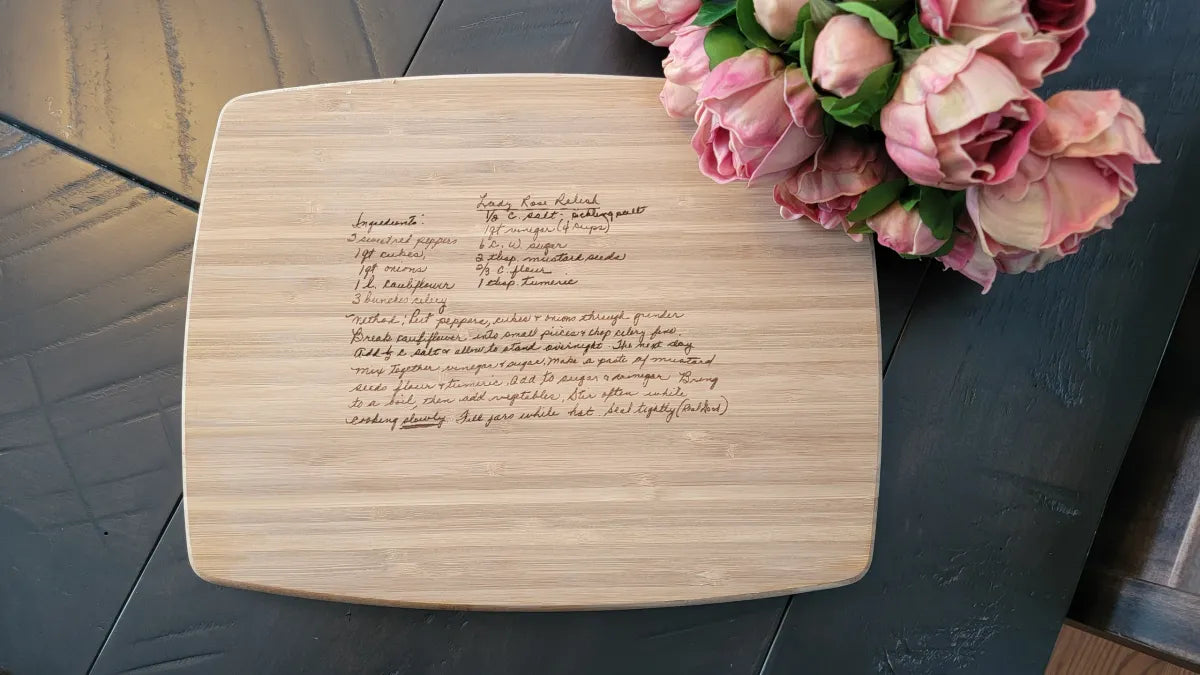 Lady Rose Relish
Ingredients:
3 sweet red peppers
1 qt cukes,
1 qt onions
1 l. cauliflower
3 bunches celery
1/2 C. salt: pickling salt
1 qt vinegar (4 cups)
6 C. W. sugar
2 tbsp. mustard seeds
2/3 C. flour
1 tbsp. tumeric
Method: Put peppers, cukes + onions through grinder
Break cauliflower into small pieces + chop celery fine.
Add 1/2 c salt + allow to stand overnight The next day
mix together vinegar + sugar. Make a paste of mustard
seeds flour + tumeric, add to sugar + vinegar Bring
to a boil, then add vegetables, Stir often while
cooking slowly. Fill jars while hot seal tightly (Real Good)